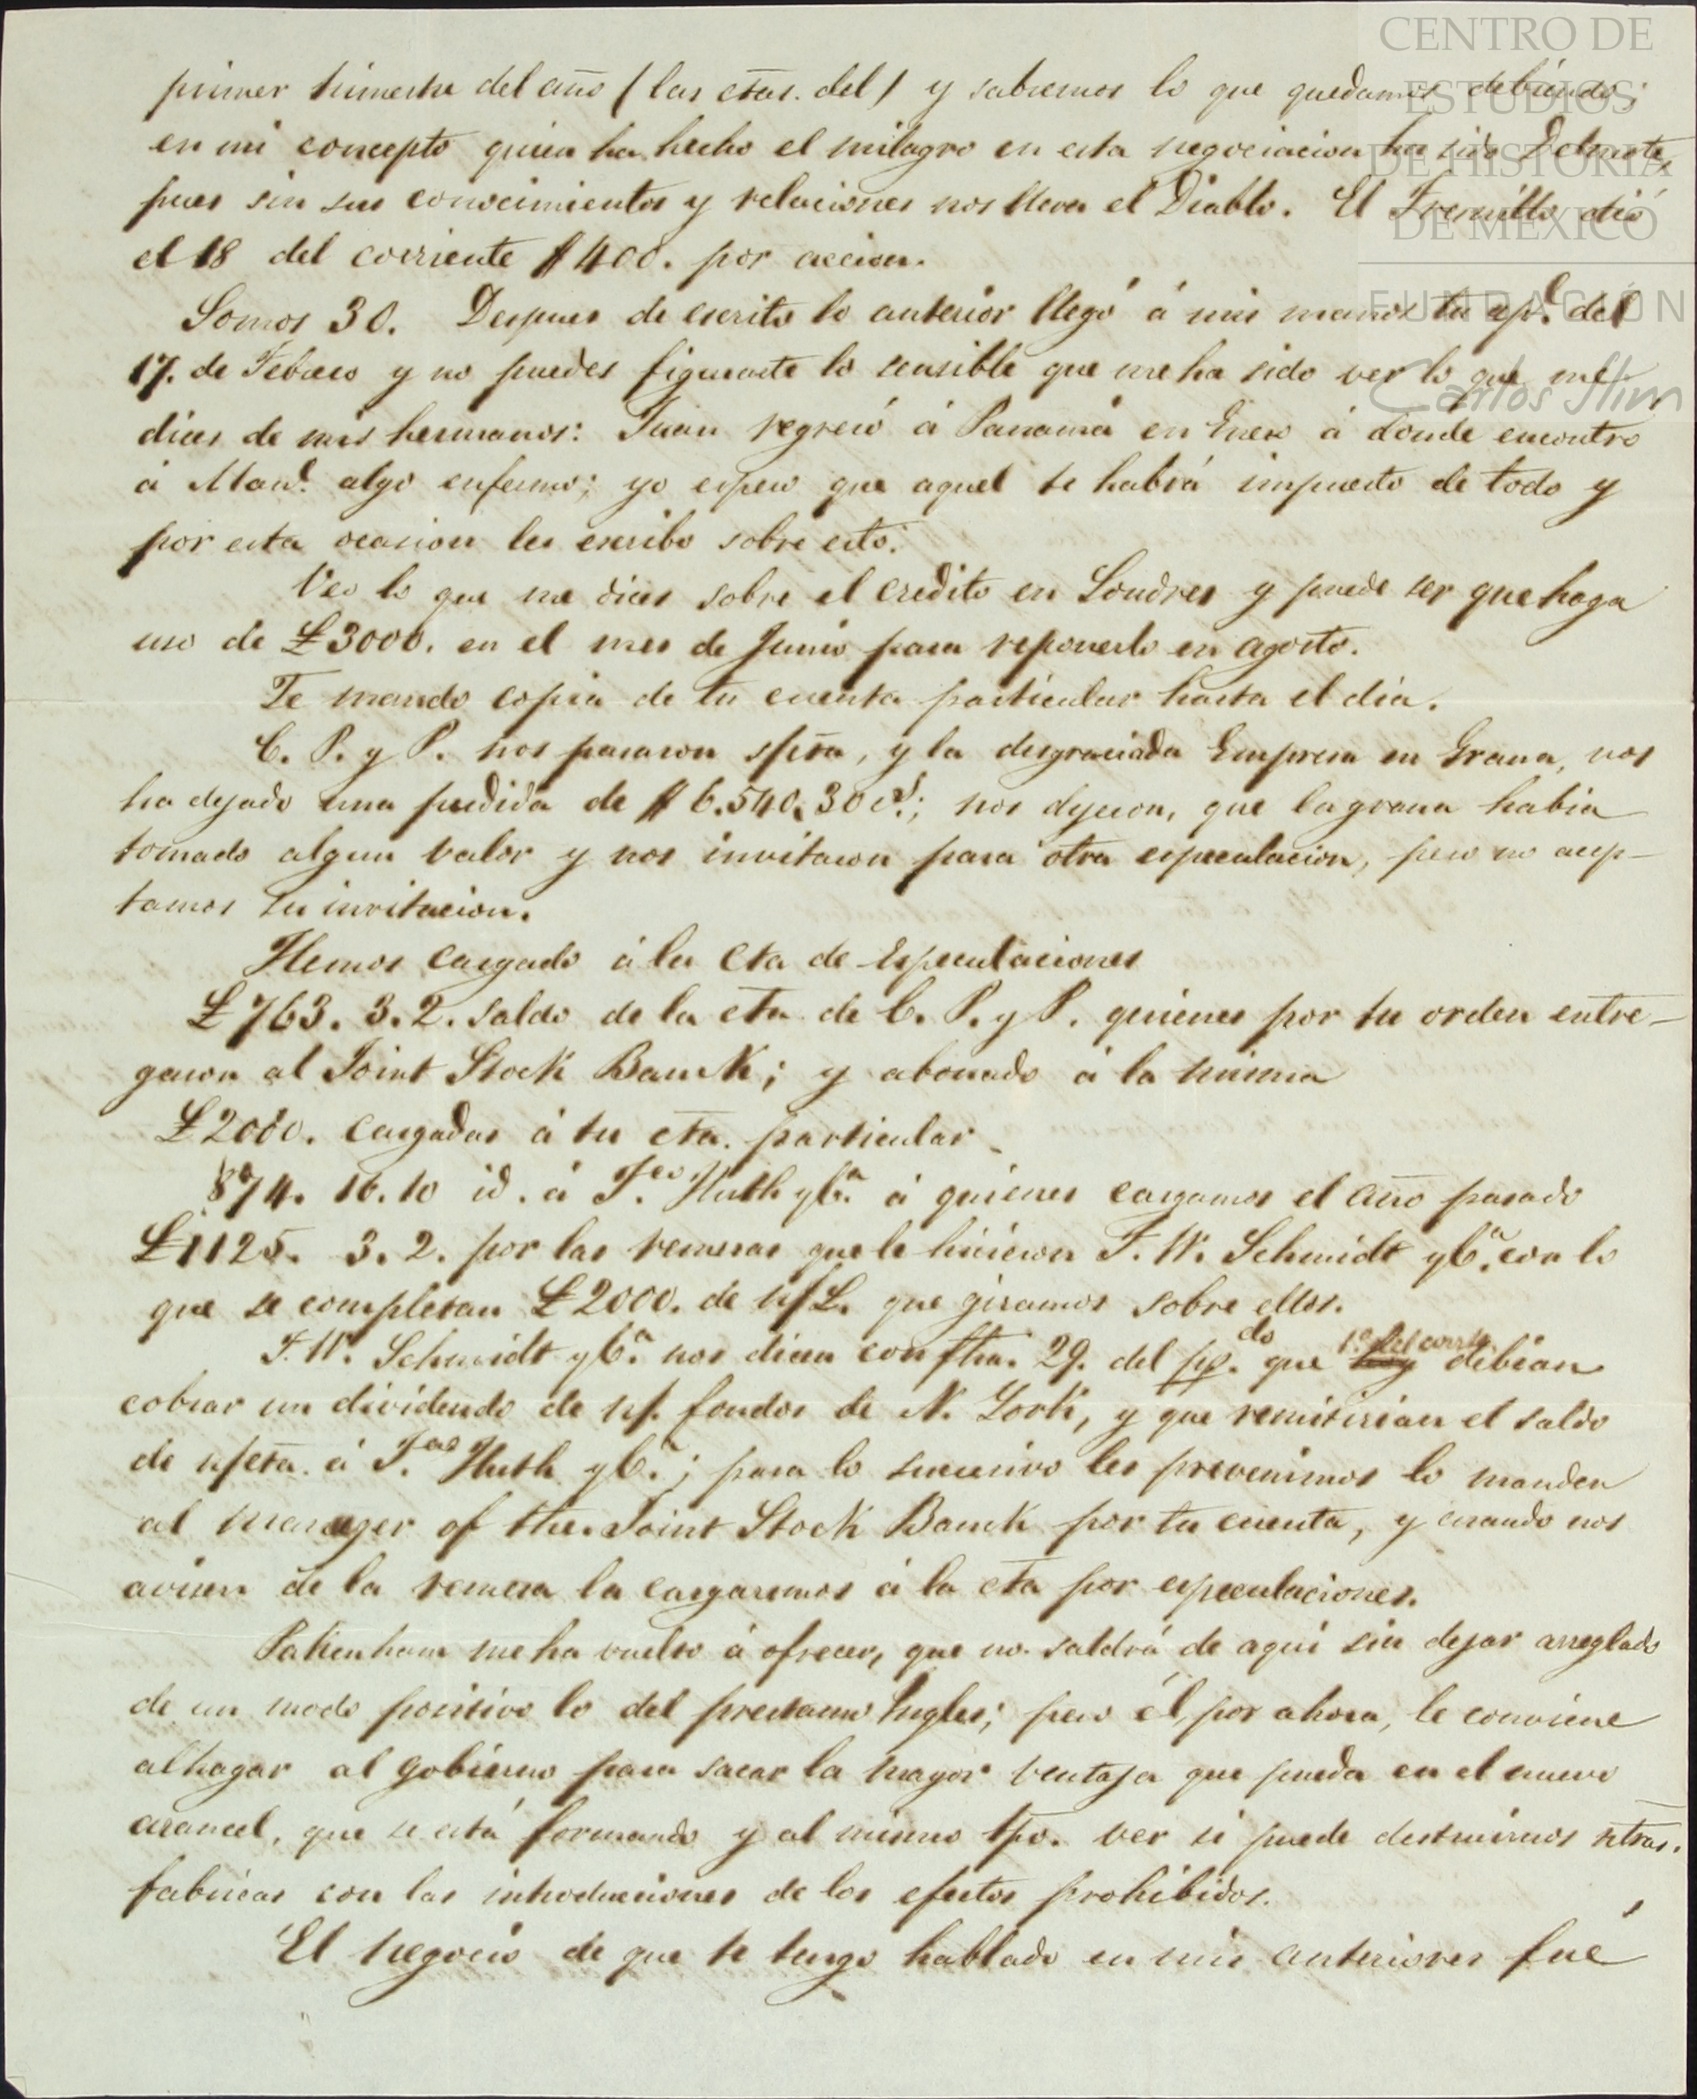 CENTRO DE
ESTUDIOS
DE HISTORIA
DE MÉXICO
FUNDACIÓN
Carlos Slim
primer trimestre del año (las ctas. del) y sabremos lo que quedamos debiendo;
en mi concepto quien ha hecho el milagro en esta negociacion ha sido Delmote,
pues sin sus conocimientos y relaciones nos lleva el Diablo. El Fresnillo dió
el 18 del corriente $400. por accion.
Somos 30. Despues de escrito lo anterior llegó á mis manos tu ap.e del
17. de Febrero y no puedes figurarte lo sensible que me ha sido ver lo que me
dices de mis hermanos: Juan regresó á Panamá en Enero á donde encontro
á Man.l algo enfermo; yo espero que aquel te habrá impuesto de todo y
por esta ocasion les escribo sobre esto.
Veo lo que me dices sobre el credito en Londres y puede ser que haga
uso de £3000. en el mes de Junio para reponerlo en agosto.
Te mando copia de tu cuenta particular hasta el dia.
C. P. y P. nos pasaron s/cta, y la desgraciada Empresa en Grana, nos
ha dejado una perdida de $6.540.30 c.s; nos dijeron, que la grana habia
tomado algun valor y nos invitaron para otra especulacion, pero no acep-
tamos su invitacion.
Hemos cargado á la Cta de Especulaciones
£763. 3. 2. saldo de la cta de C. P. y P. quienes por tu orden entre-
garon al Joint Stock Banck; y abonado á la misma
£2000. cargadas á tu cta. particular
874. 16. 10 id. á F.co Huth y C.a á quienes cargamos el año pasado
£1125. 3. 2. por las remesas que le hicieron F. W. Schmidt y C.a con lo
que se completan £2000. de n/L. que giramos sobre ellos.
F. W. Schmidt y C.a nos dicen con fha. 29. del pp.do que hoy 1.o del corr.te debian
cobrar un dividendo de n/. fondos de N. York, y que remitirian el saldo
de n/cta. á F.co Huth y C.a; para lo sucesivo les prevenimos lo manden
al manager of the Joint Stock Banck por tu cuenta, y cuando nos
avisen de la remesa la cargaremos á la cta por especulaciones.
Pakenham me ha vuelto á ofrecer, que no saldrá de aqui sin dejar arreglado
de un modo positivo lo del prestamo Ingles; pero él, por ahora, le conviene
alhagar al gobierno para sacar la mayor ventaja que pueda en el nuevo
arancel, que se está formando y al mismo tpo. ver si puede destruirnos ntras.
fabricas con las introducciones de los efectos prohibidos.
El negocio de que te tengo hablado en mis anteriores fué